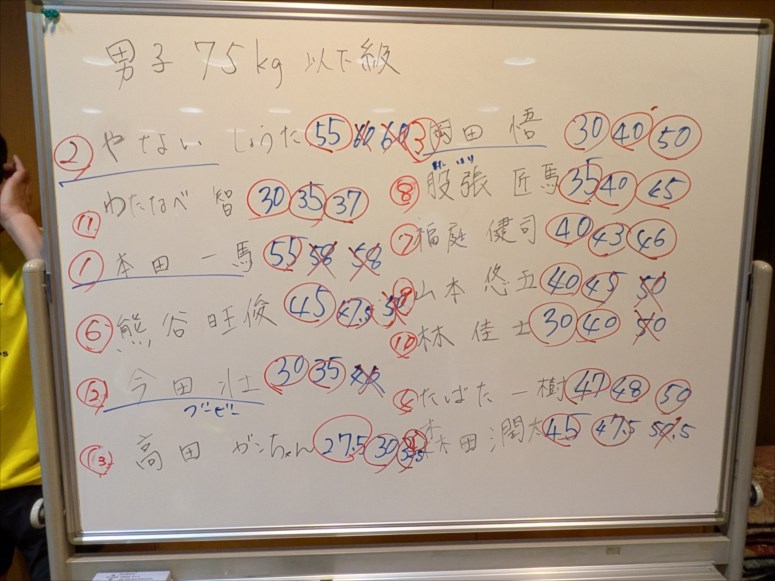 男子 75kg 以下級
② やない しょうた 55 60 60
⑪ わたなべ 智 30 35 37
① 本田 一馬 55 58 58
⑥ 熊谷 旺俊 45 47.5 50
⑫ 今田 壮 30 35 40
ブービー
⑬ 高田 がんちゃん 27.5 30 32.5
③ 岡田 悟 30 40 50
⑧ 股張 匠馬 35 40 45
⑦ 福庭 健司 40 43 46
⑨ 山本 悠五 40 45 50
⑩ 林 佳士 30 40 50
④ たばた 一樹 47 48 50
森田 潤太 45 47.5 50.5